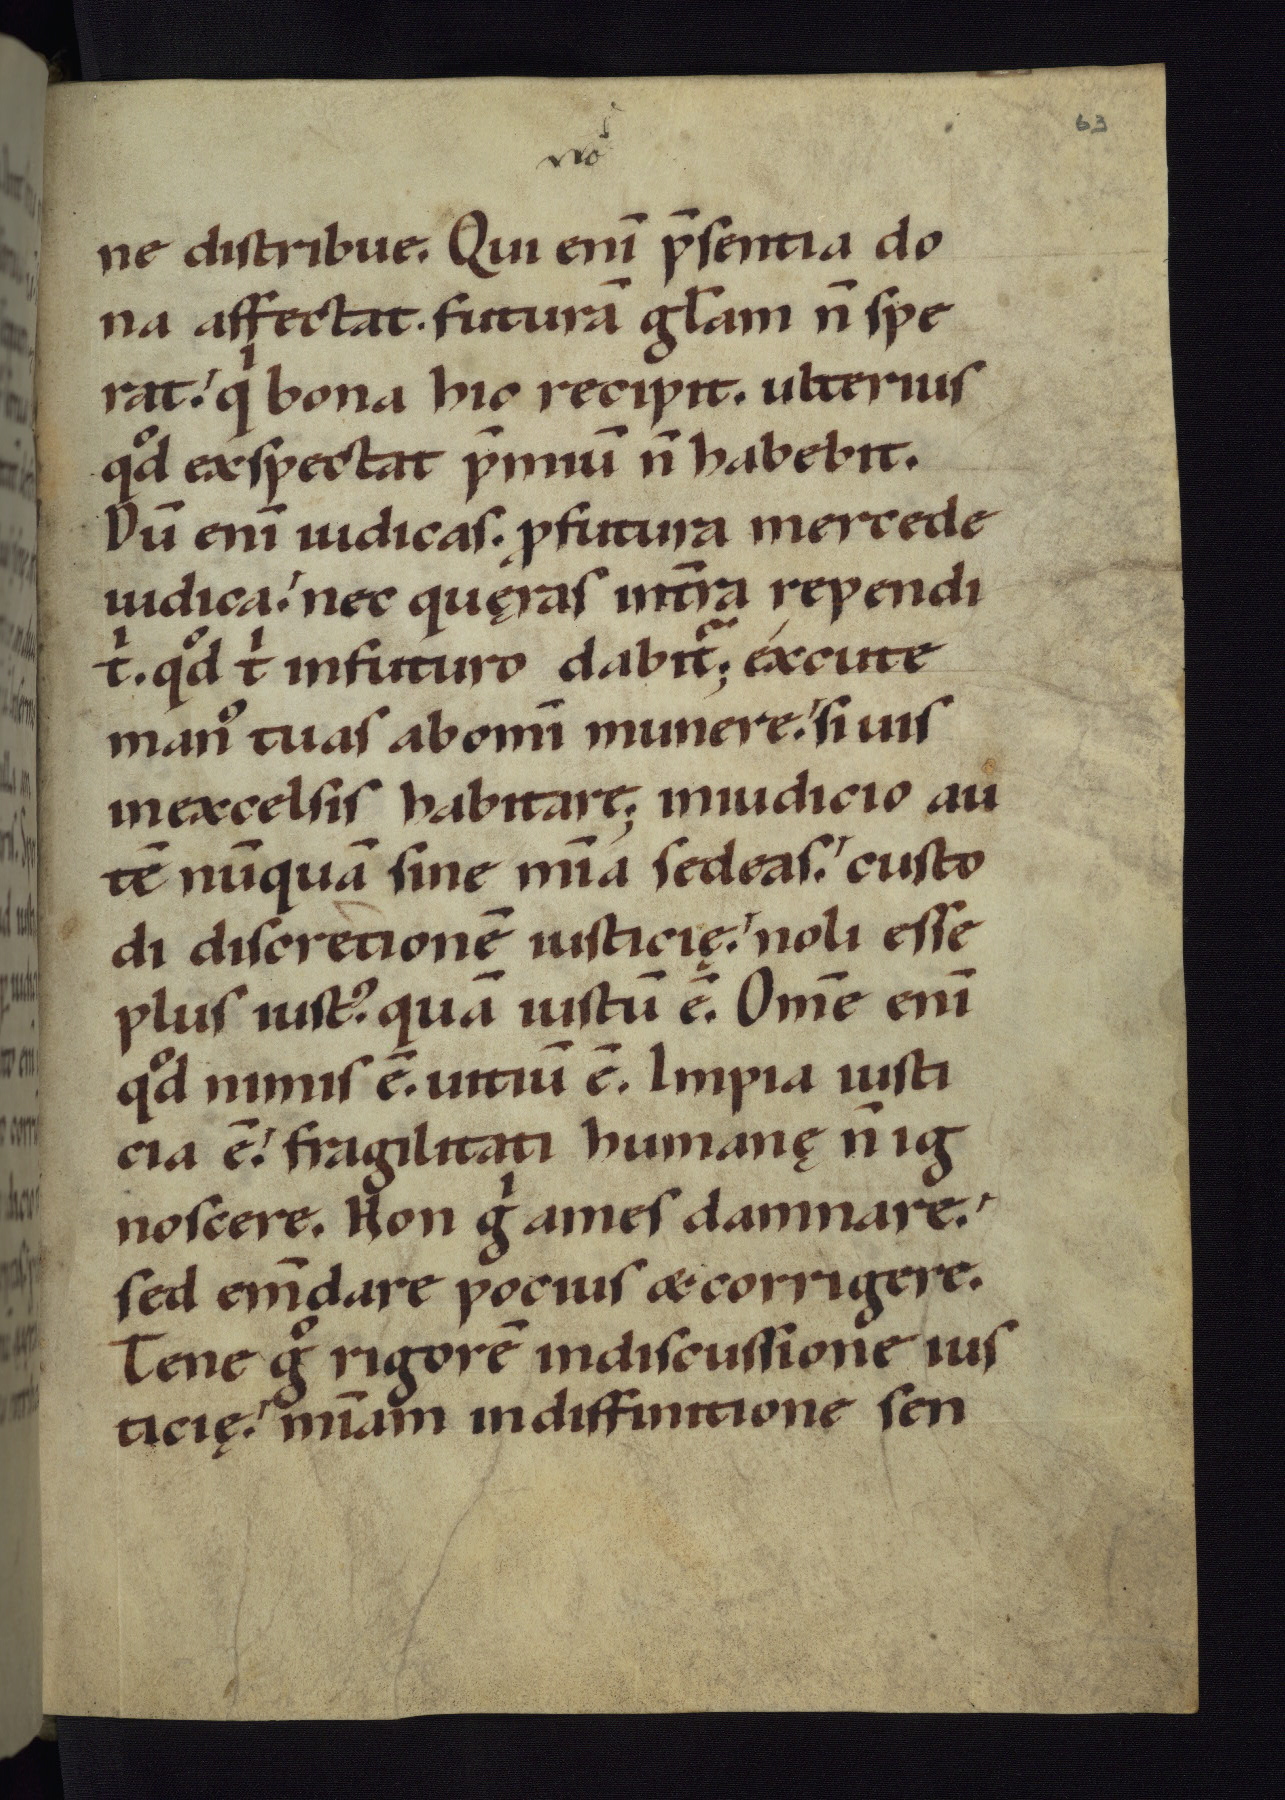 63
ne distribue. Qui eni̅ p̅sentia do
na affectat. futura̅ gl̅am n̅ spe
rat.' qⁱ bona hic recipit. ulterius
qͦd exspectat p̅miu̅ n̅ habebit.
Du̅ eni̅ iudicas. ꝓfutura mercede
iudica.' nec quęras int̅ra rependi
tⁱ. qͦd tⁱ infuturo dabit᷑; excute
manꝰ tuas abomi̅ munere.' si uis
inexcelsis habitare; iniudicio au
te̅ nu̅qua̅ sine mi̅a sedeas.' custo
di discretione̅ iusticię.' noli esse
plus iustꝰ. qua̅ iustu̅ e̅. Om̅e eni̅
qͦd nimis e̅. uitiu̅ e̅. Impia iusti
cia e̅.' fragilitati humanę n̅ ig
noscere. Non gⁱ ames damnare.'
sed em̅dare pocius &corrigere.
Tene gͦ rigore̅ indiscussione ius
ticię.' mi̅am indiffinitione sen